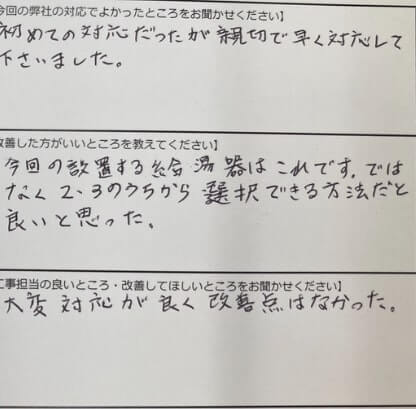 今回の弊社の対応でよかったところをお聞かせください】
初めての対応だったが親切で早く対応して
下さいました。
改善した方がいいところを教えてください】
今回の設置する給湯器はこれです。では
なく2、3のうちから選択できる方法だと
良いと思った。
工事担当の良いところ・改善してほしいところをお聞かせください】
大変対応が良く改善点はなかった。